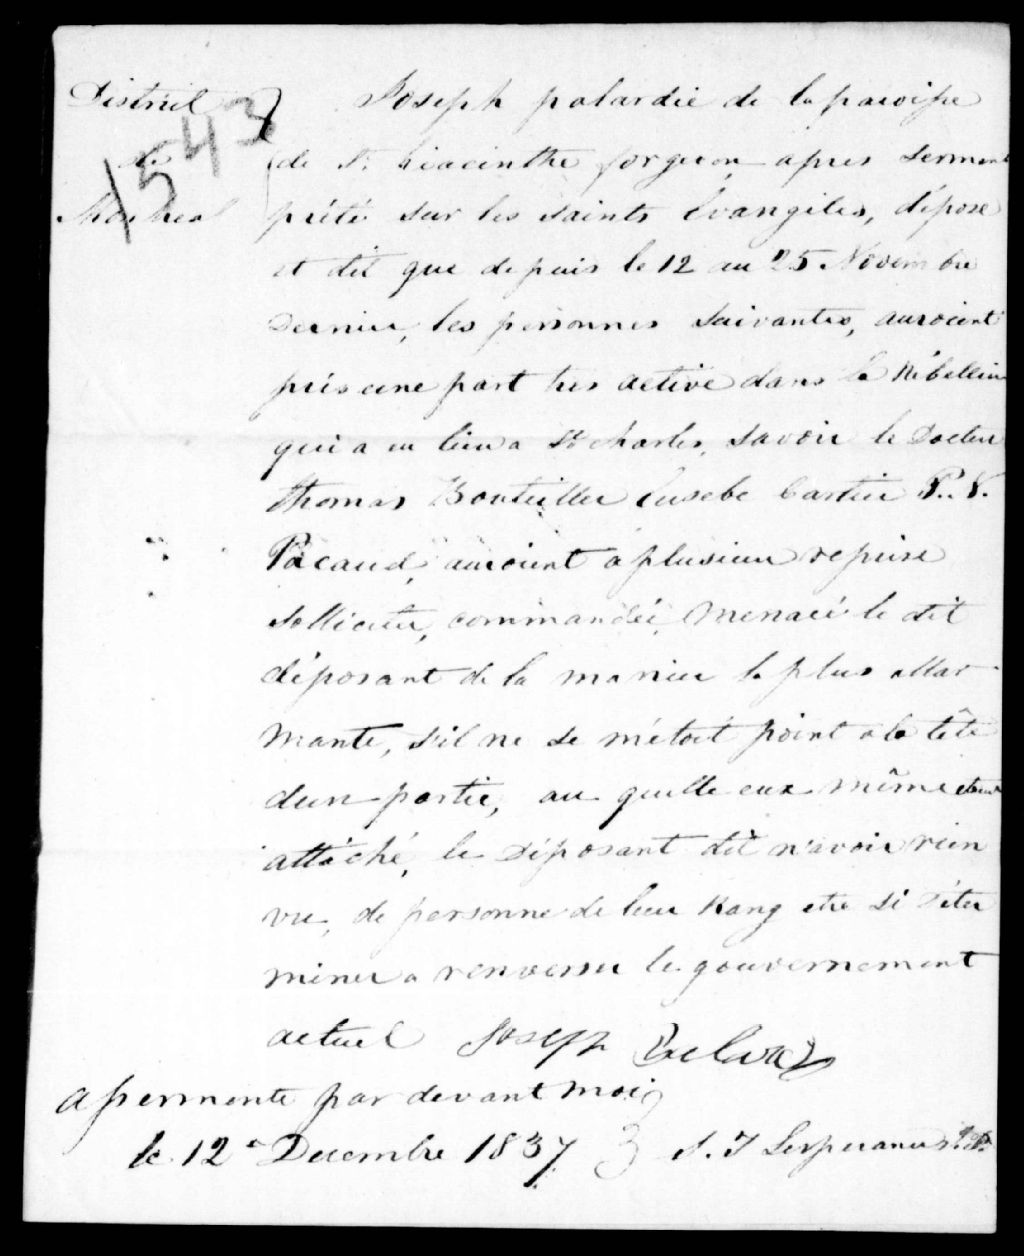 District } Joseph palardie de la paroisse
1543
de de St. hiacinthe forgeron apres serment
Montreal prété sur les saints Evangiles, dépose
et dit que depuis le 12 au 25 Novembre
Dernier, les personnes suivantes, auroient
pris une part tres active dans la Rébellion
qui a eu lieu a St charles, savoir le Docteur
thomas Bouteiller Eusebe Cartier P. V.
Pacaud, auroient a plusieur reprise
solliciter, commandée, Menacé le dit
déposant de la manier la plus allar
mante, s'il ne se métoit point a la tête
d'un partie, au quelle eux même étoient
attaché, le Déposant dit n'avoir rien
vu, de personne de leur Rang etre si déter
miner a renverser le gouvernement
actuel Joseph
assermenté par devant moi
le 12e Decembre 1837 } S. J Lesperance J.P.